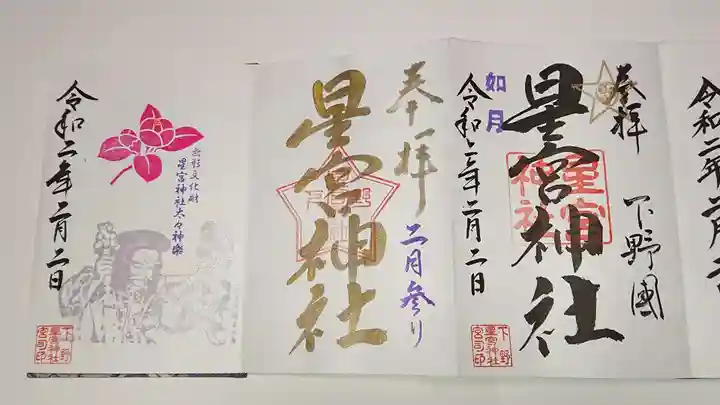 奉拝
下野國
星宮神社
星宮
神社
如月
令和二年二月二日
下野
星宮神社
宮司印
奉拝
二月参り
星宮神社
無形文化財
星宮神社太々神楽
令和二年二月二日
下野
星宮神社
宮司印
令和二年二月二